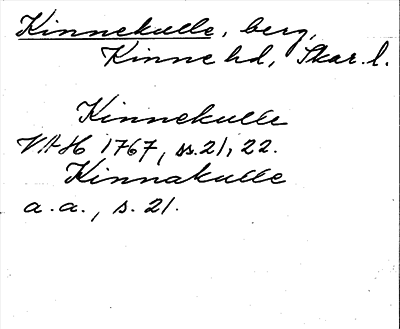 Kinnekulle, berg,
Kinne hd, Skar. l.
Kinnekulle
VAH 1767, ss. 21, 22.
Kinnakulle
a. a., s. 21.